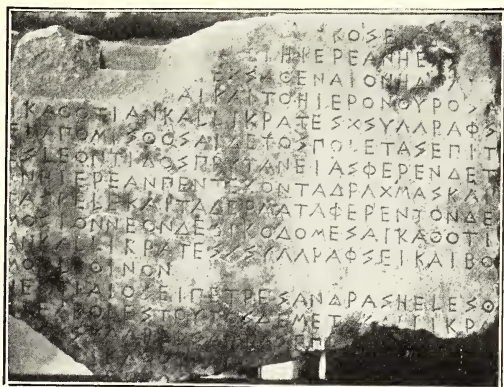 ΚΟΣΕ
ΕΙΗΙΕΡΕΑΝΗΕ
ΕΧΣΑΘΕΝΑΙΟΝΗΑΠΑ
ΑΙΚΑΙΤΟΗΙΕΡΟΝΘΥΡΟΣ
ΚΑΘΟΤΙΑΝΚΑΛΛΙΚΡΑΤΕΣΧΣΥΓΓΡΑΦΣ
ΕΙΑΠΟΜΙΣΘΟΣΑΙΔΕΤΟΣΠΟΛΕΤΑΣΕΠΙΤ
ΕΣΛΕΟΝΤΙΔΟΣΠΡΥΤΑΝΕΙΑΣΦΕΡΕΝΔΕΤ
ΕΝΗΙΕΡΕΑΝΠΕΝΤΕΚΟΝΤΑΔΡΑΧΜΑΣΚΑΙ
ΤΑΣΚΕΛΕΚΑΙΤΑΔΕΡΜΑΤΑΦΕΡΕΝΤΟΝΔΕ
ΜΟΣΙΟΝΝΕΟΝΔΕΟΙΚΟΔΟΜΕΣΑΙΚΑΘΟΤΙ
ΑΝΚΑΛΛΙΚΡΑΤΕΣΧΣΥΓΓΡΑΦΣΕΙΚΑΙΒΟ
ΜΟΝΛΙΘΙΝΟΝ
ΗΕΣΤΙΑΙΟΣΕΙΠΕΤΡΕΣΑΝΔΡΑΣΗΕΛΕΣΘ
ΑΙΕΓΒΟΛΕΣΤΟΥΤΟΣΔΕΜΕΤΑΚΑΛΛΙΚΡΑ